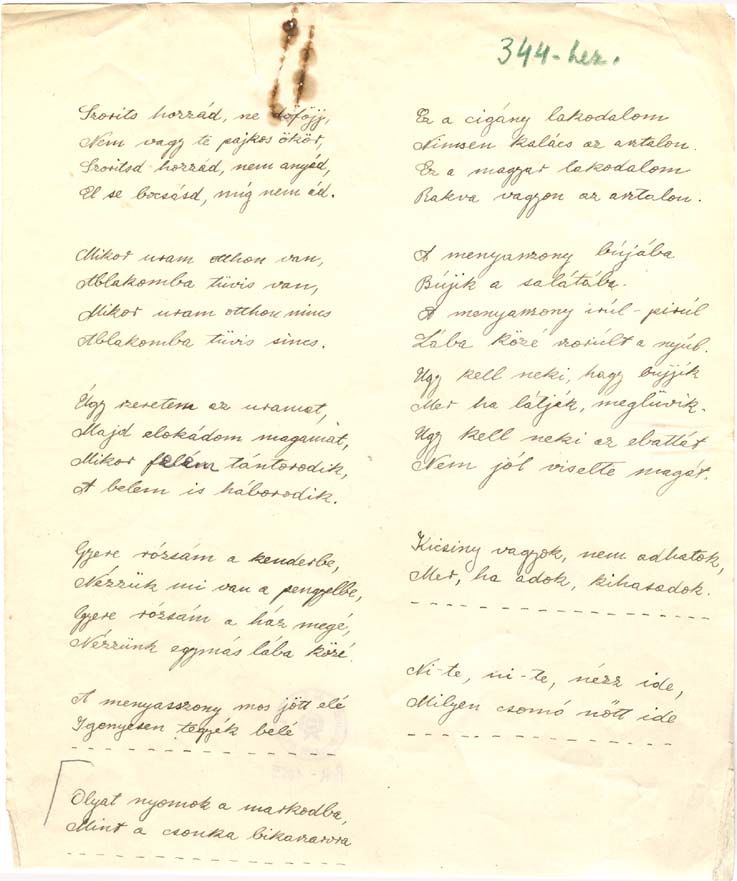 344-hez.
Szorits hozzád, ne döföjj,
Nem vagy te pajkos ökör,
Szoritsd hozzád, nem anyád,
El se bocsásd, míg nem ád.
Mikor uram otthon van,
Ablakomba tüvis van,
Mikor uram otthon nincs
Ablakomba tüvis sincs.
Úgy szeretem az uramat,
Majd elokádom magamat,
Mikor felém tántorodik,
A belem is háborodik.
Gyere rózsám a kenderbe,
Nézzük mi van a pengyelbe,
Gyere rózsám a ház megé,
Nézzünk egymás lába közé.
A menyasszony mos jött elé
Igenyesen tegyék belé
Olyat nyomok a markodba,
Mint a csonka bikaszarva
Ez a cigány lakodalom
Nincsen kalács az asztalon.
Ez a magyar lakodalom
Rakva vagyon az asztalon.
A menyasszony bújába
Bújik a salátába.
A menyasszony irúl-pirúl
Lába közé szorúlt a nyúl.
Úgy kell neki, hagy bujjék
Mer ha látják, meglüvik.
Úgy kell neki az ebattét
Nem jól viselte magát.
Kicsiny vagyok, nem adhatok,
Mer, ha adok, kihasadok.
Ni-te, ni-te, nézz ide,
Milyen csomó nőtt ide